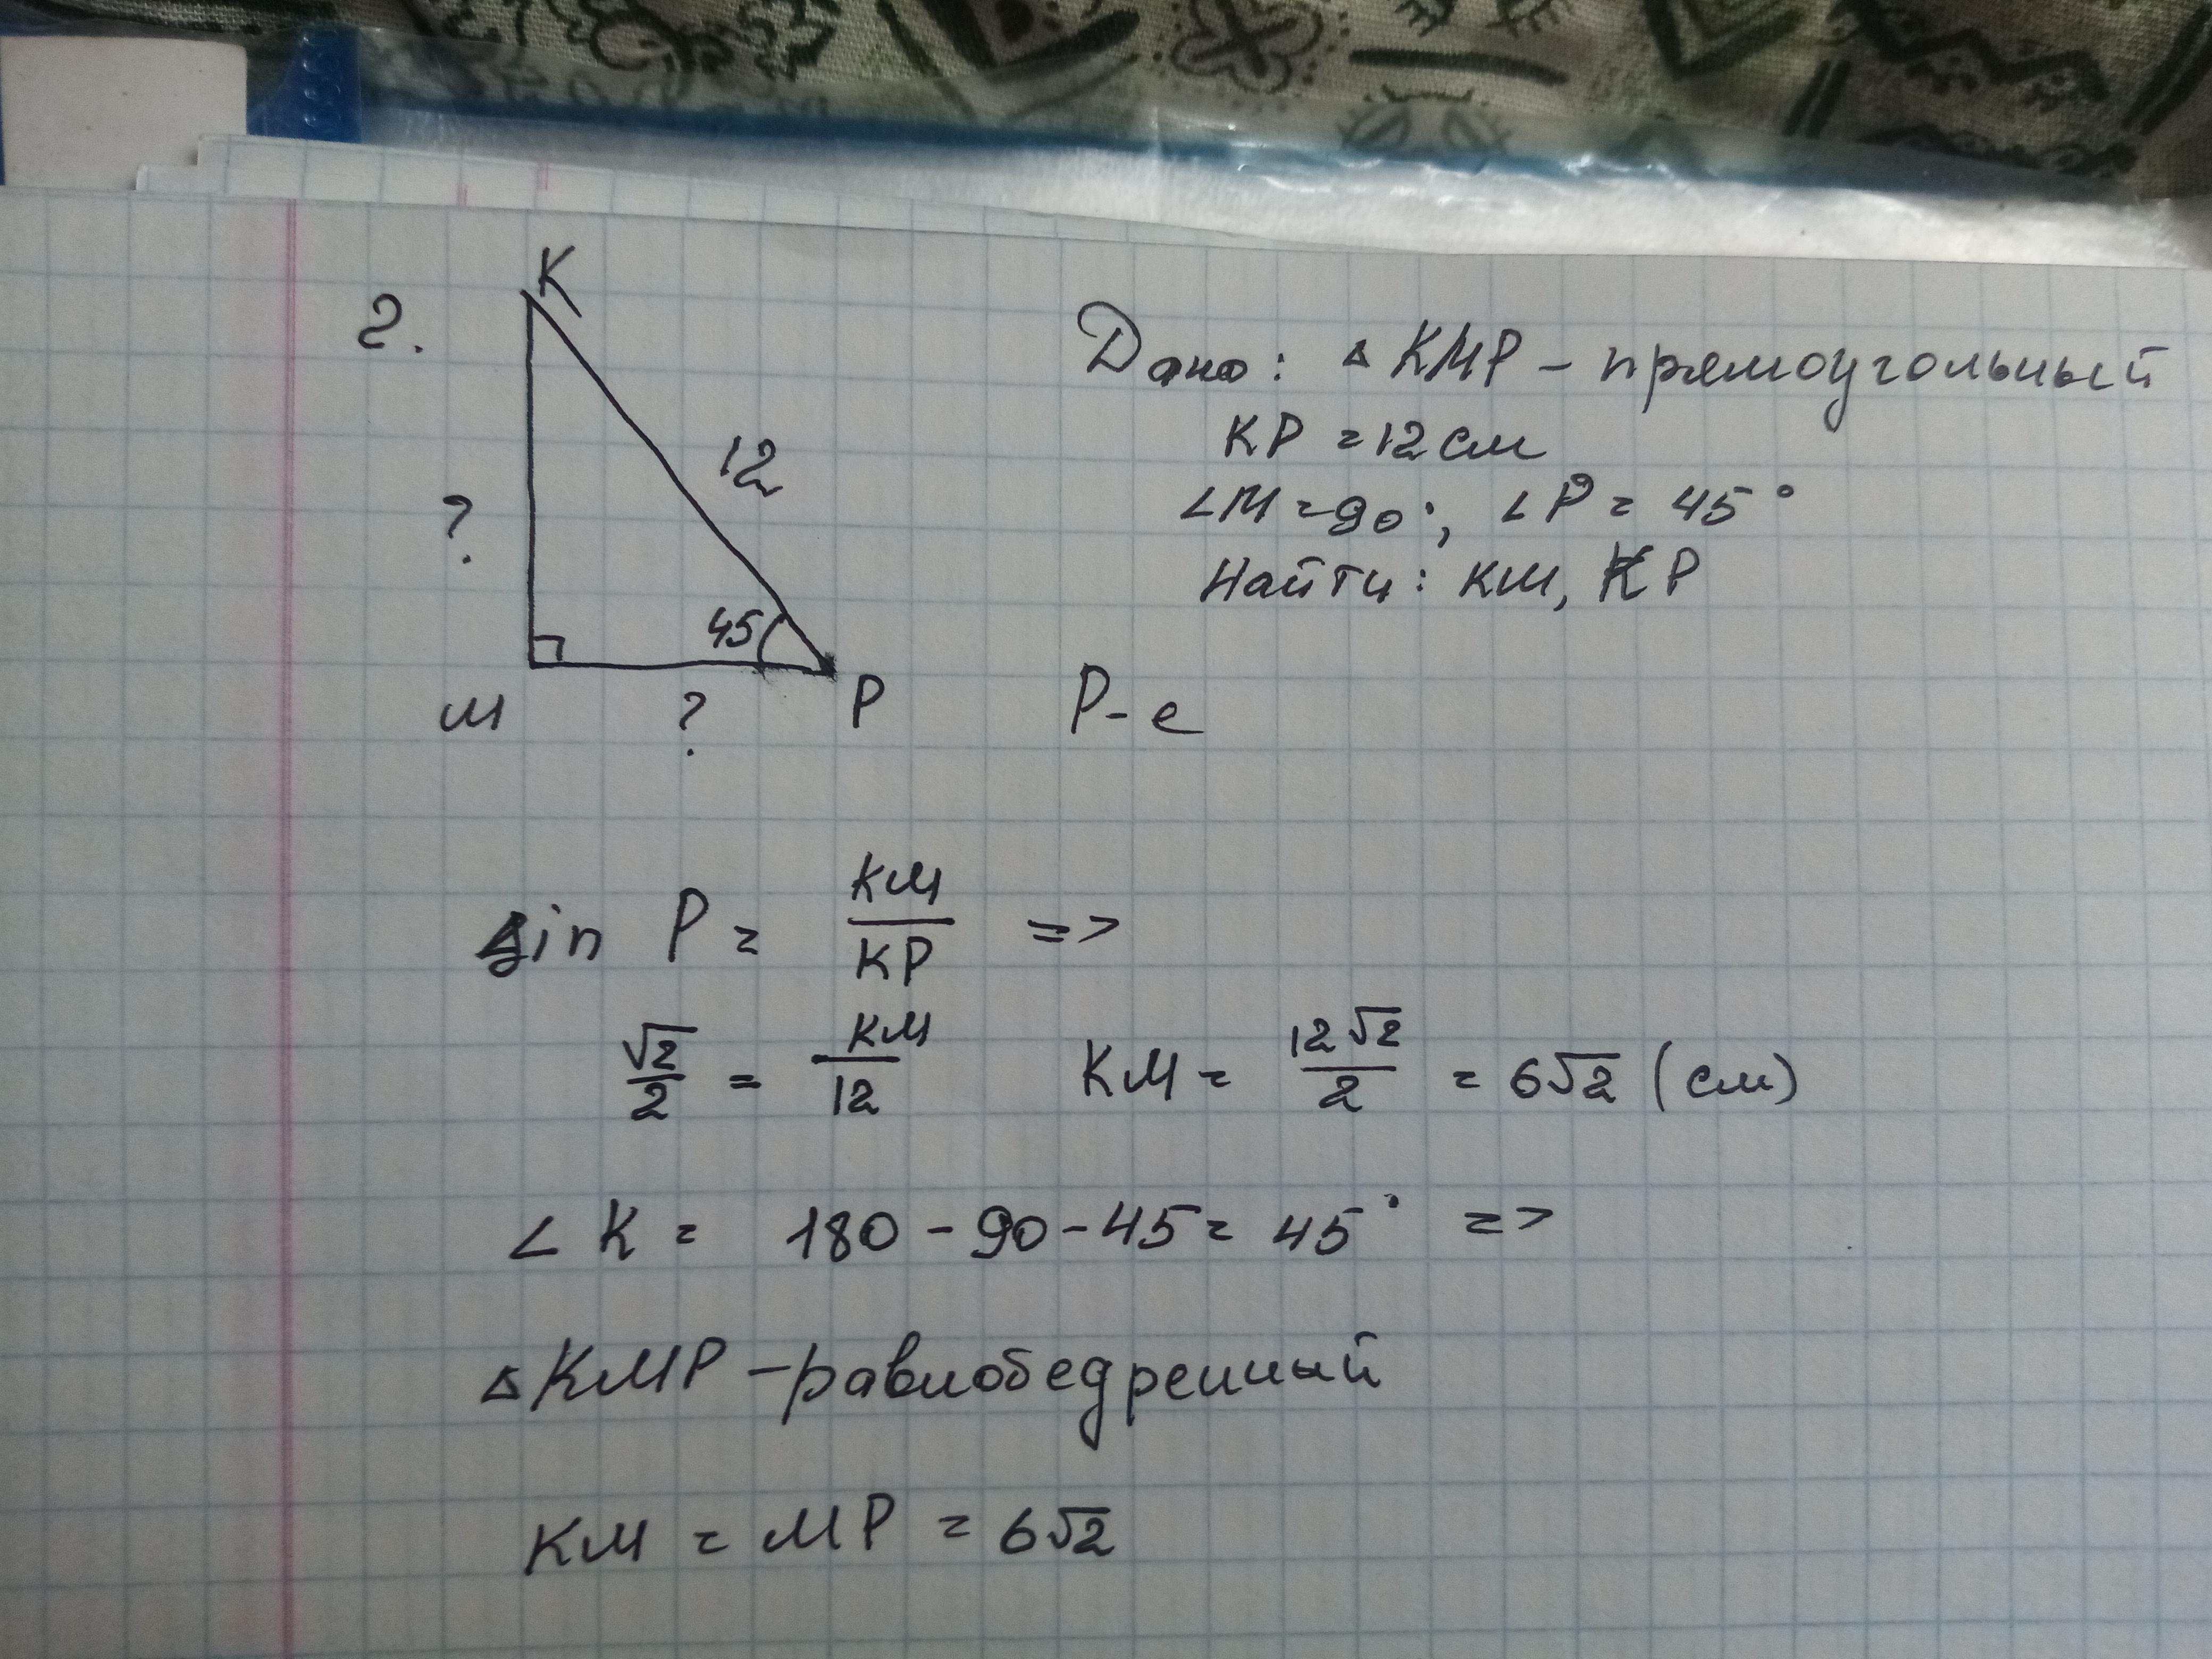 2.
K
12
?
45
M
?
P
Дано: △ KMP – прямоугольный
KP = 12 см
∠M = 90°, ∠P = 45°
Найти: KM, KP
Р-е
sin P = KM/KP =>
√2/2 = KM/12 KM = 12√2/2 = 6√2 (см)
∠ K = 180 - 90 - 45 = 45° =>
△ KMP – равнобедренный
KM = MP = 6√2